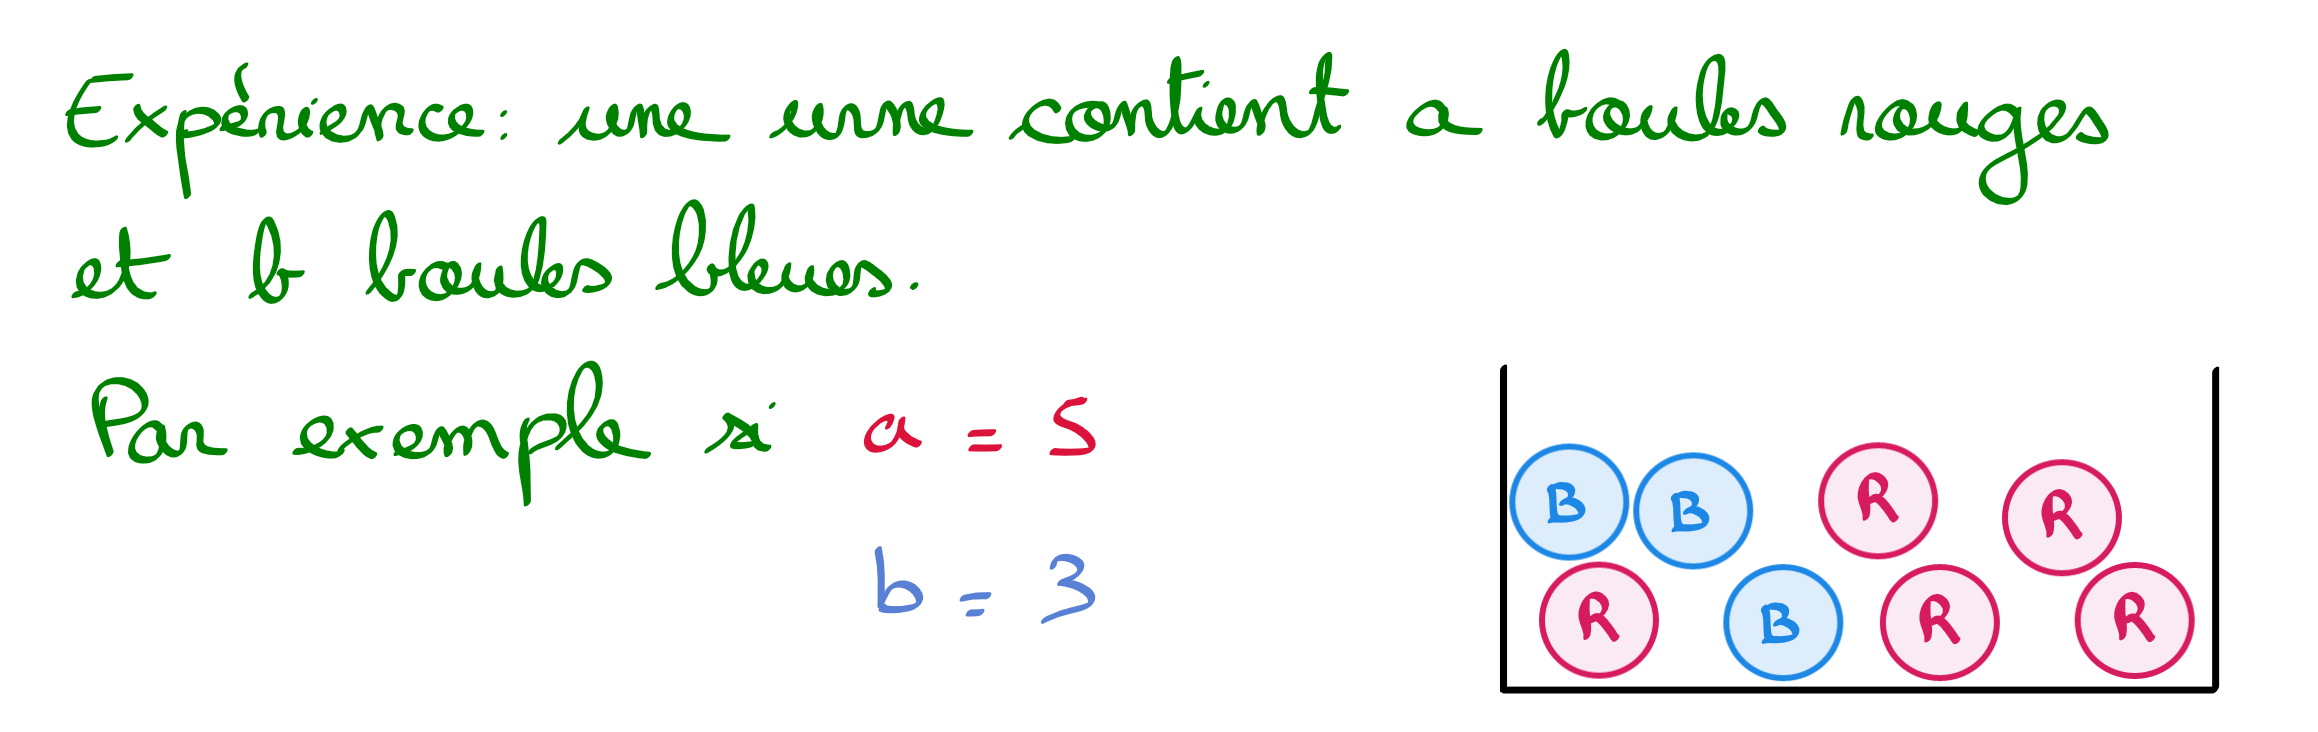 Expérience: une urne contient a boules rouges
et b boules bleues.
Par exemple si a = 5
b = 3
B B R R
R B R R